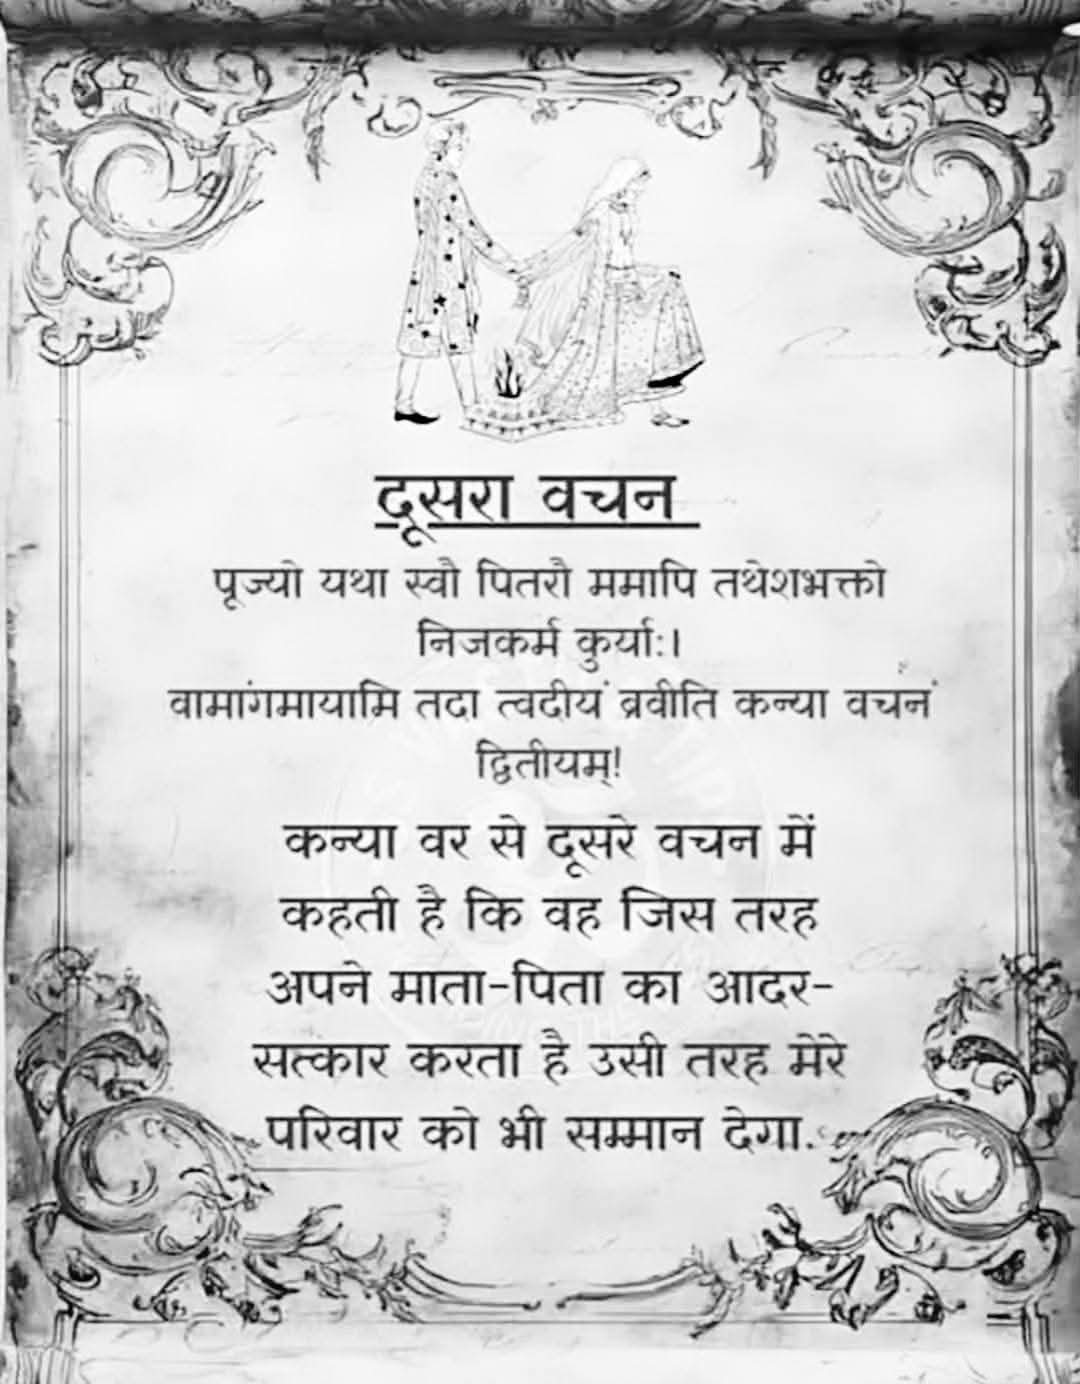 दूसरा वचन
पूज्यो यथा स्वौ पितरौ ममापि तथेशभक्तो
निजकर्म कुर्याः।
वामांगमायामि तदा त्वदीयं ब्रवीति कन्या वचनं
द्वितीयम्!
कन्या वर से दूसरे वचन में
कहती है कि वह जिस तरह
अपने माता-पिता का आदर-
सत्कार करता है उसी तरह मेरे
परिवार को भी सम्मान देगा.